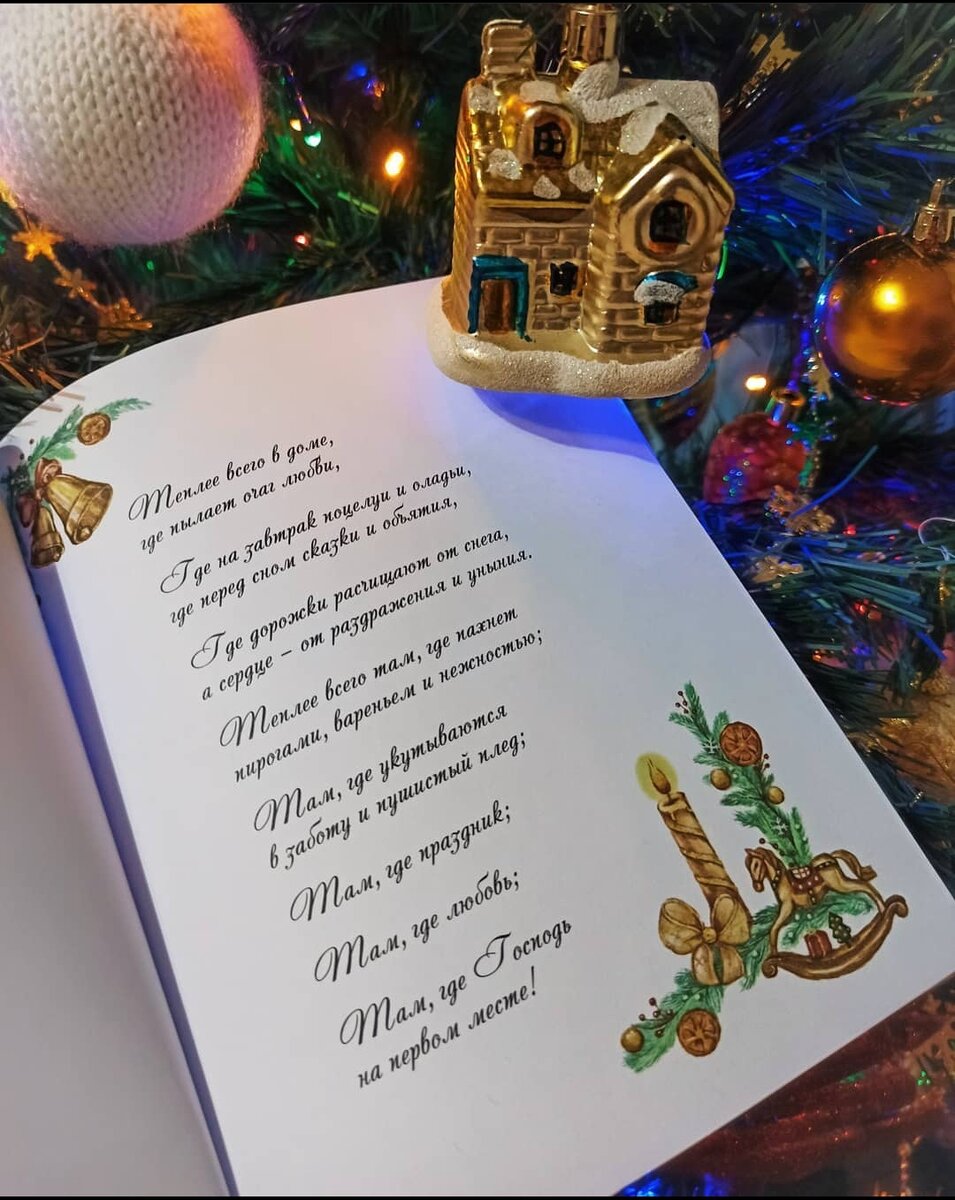 Теплее всего в доме,
где пылает очаг любви,
Где на завтрак поцелуи и оладьи,
где перед сном сказки и объятия,
Где дорожки расчищают от снега,
а сердце – от раздражения и уныния.
Теплее всего там, где пахнет
пирогами, вареньем и нежностью;
Там, где укутываются
в заботу и пушистый плед;
Там, где праздник;
Там, где любовь;
Там, где Господь
на первом месте!